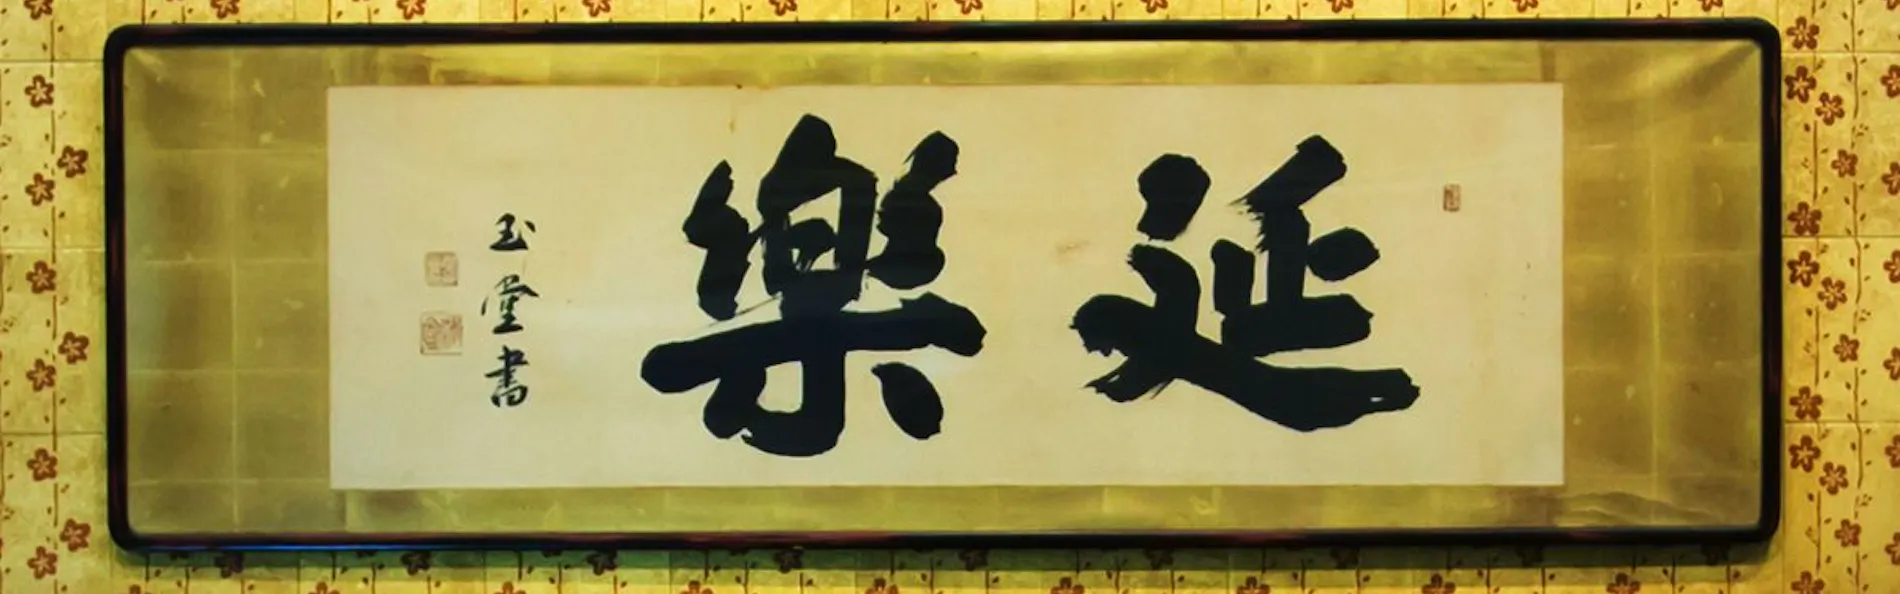 延樂
玉堂書